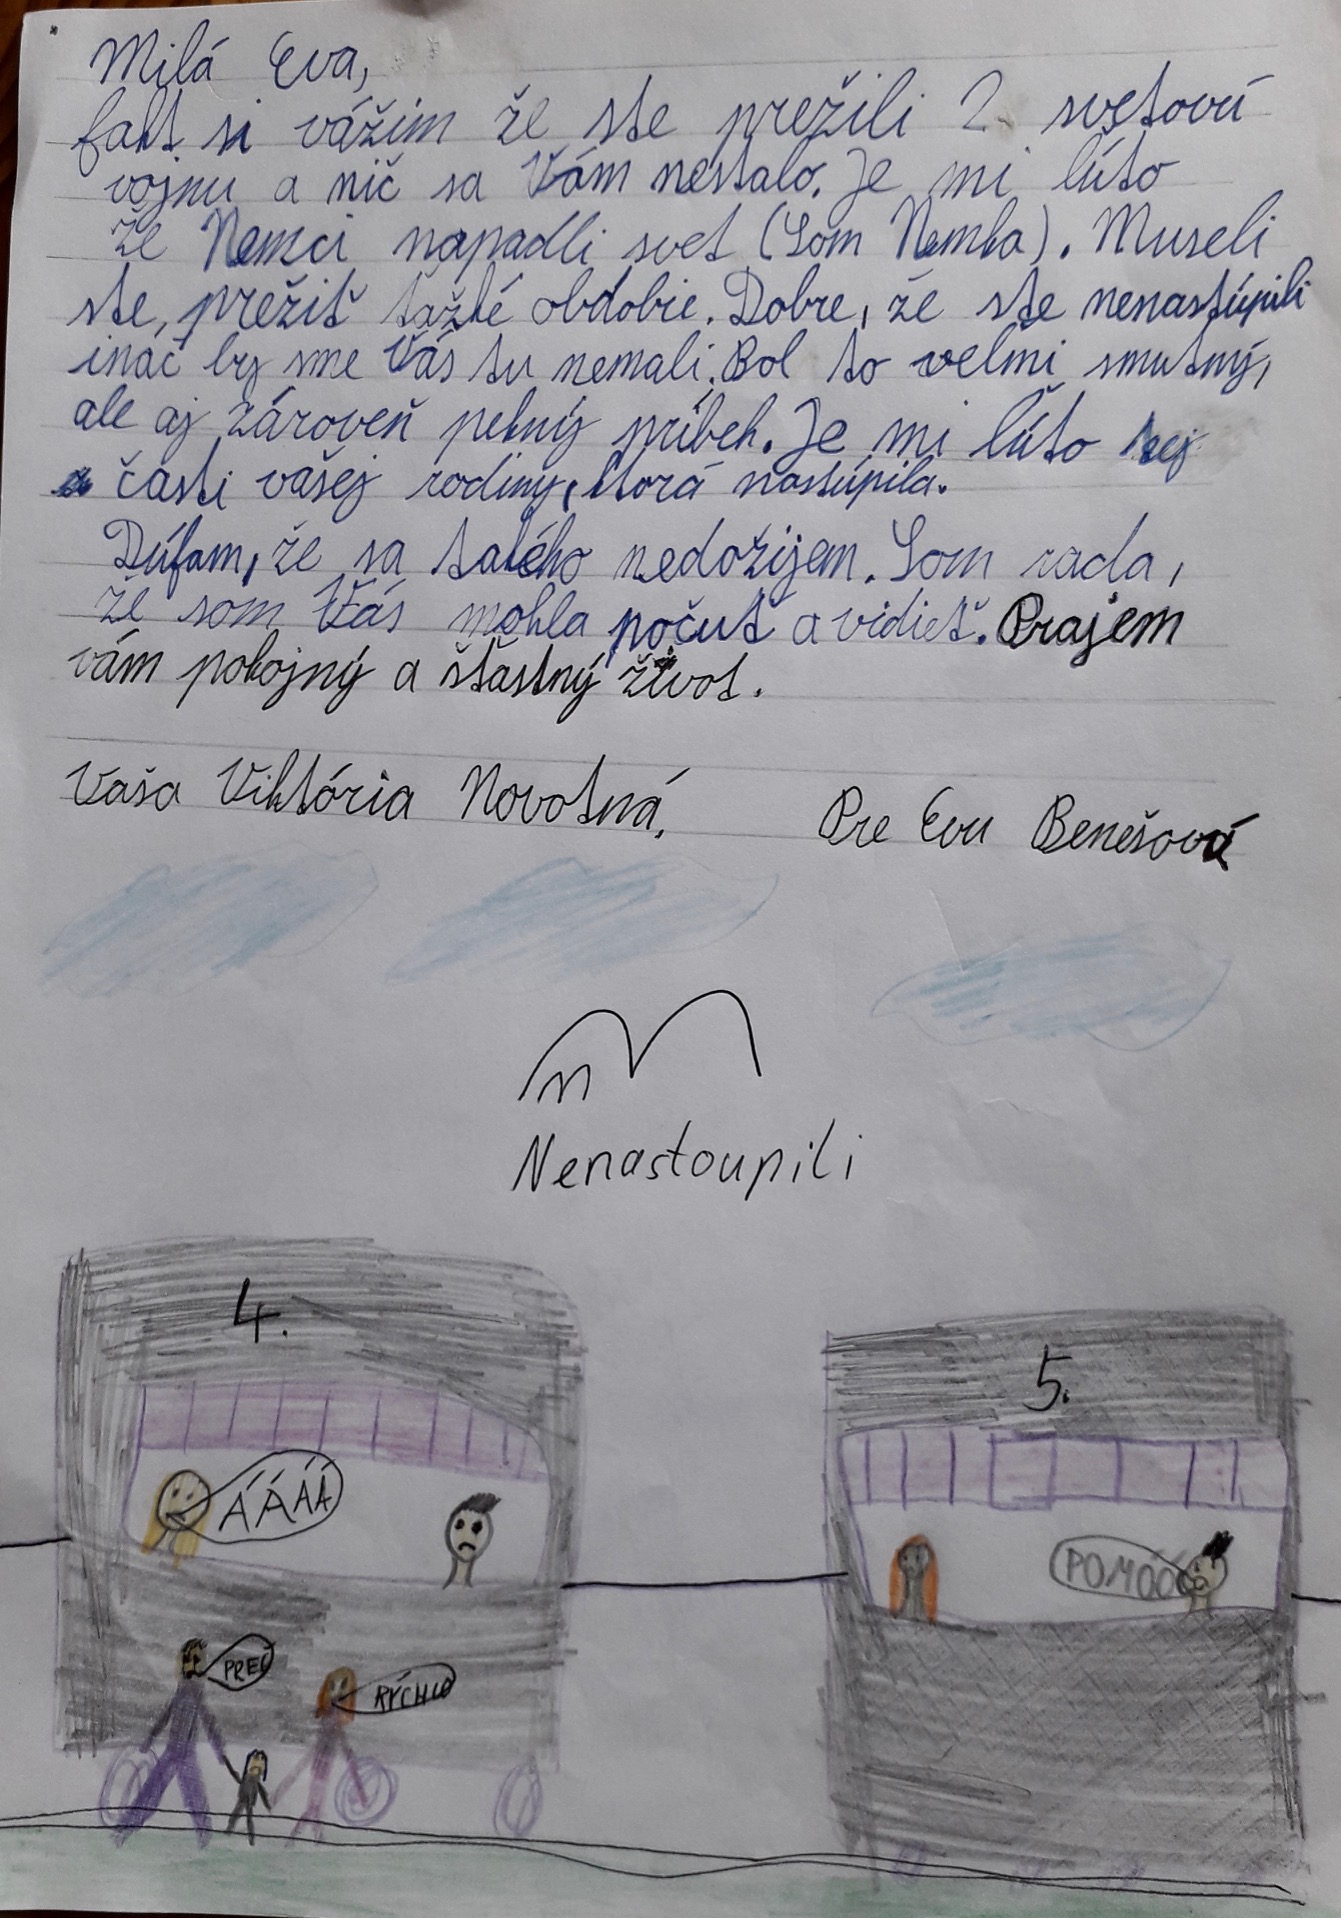 Milá Eva,
fakt si vážim že ste prežili 2. svetovú
vojnu a nič sa Vám nestalo. Je mi lúto
že Nemci napadli svet (Som Nemka). Museli
ste, prežiť ťažké obdobie. Dobre, že ste nenastúpili
ináč by sme Vás tu nemali. Bol to velmi smutný,
ale aj zároveň pekný príbeh. Je mi lúto tej
časti vašej rodiny, ktorá nastúpila.
Dúfam, že sa takého nedožijem. Som rada,
že som Vás mohla počuť a vidieť. Prajem
vám pokojný a šťastný život.
Vaša Viktória Novotná. Pre Evu Benešovú
Nenastoupili
4.
5.
ÁÁÁÁ
POMÓÓC
PREČ
RÝCHLO